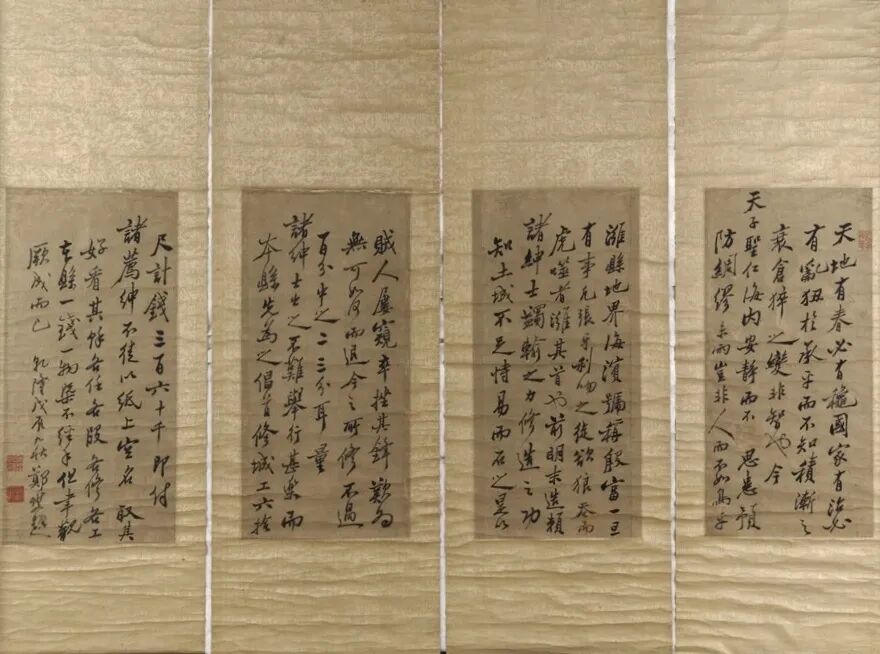 天地有春必有穐國家有治必
有亂狃於承平而不知積漸之
衰倉猝之變非智也今
天子聖仁海內安靜而不思患預
防綢繆未雨豈非人而不如鳥乎
濰縣地界海濱號稱殷富一旦
有事凡張牙利吻之徒欲狼吞而
虎噬者濰其首也前明末造賴
諸紳士蠲輸之力修造之功
知土城不足恃易而石之是以
賊人屢窺卒挫其鋒歎為
無可如何而退今之所修不過
百分中之二三分耳量
諸紳士出之不難舉行甚樂而
本縣先為之倡首修城工六拾
尺計錢三百六十千即付
諸薦紳不徒以紙上空名取其
好看其餘各任各段各修各工
本縣一錢一物槩不經手但聿觀
厥成而已 乾隆戊辰秋鄭燮題